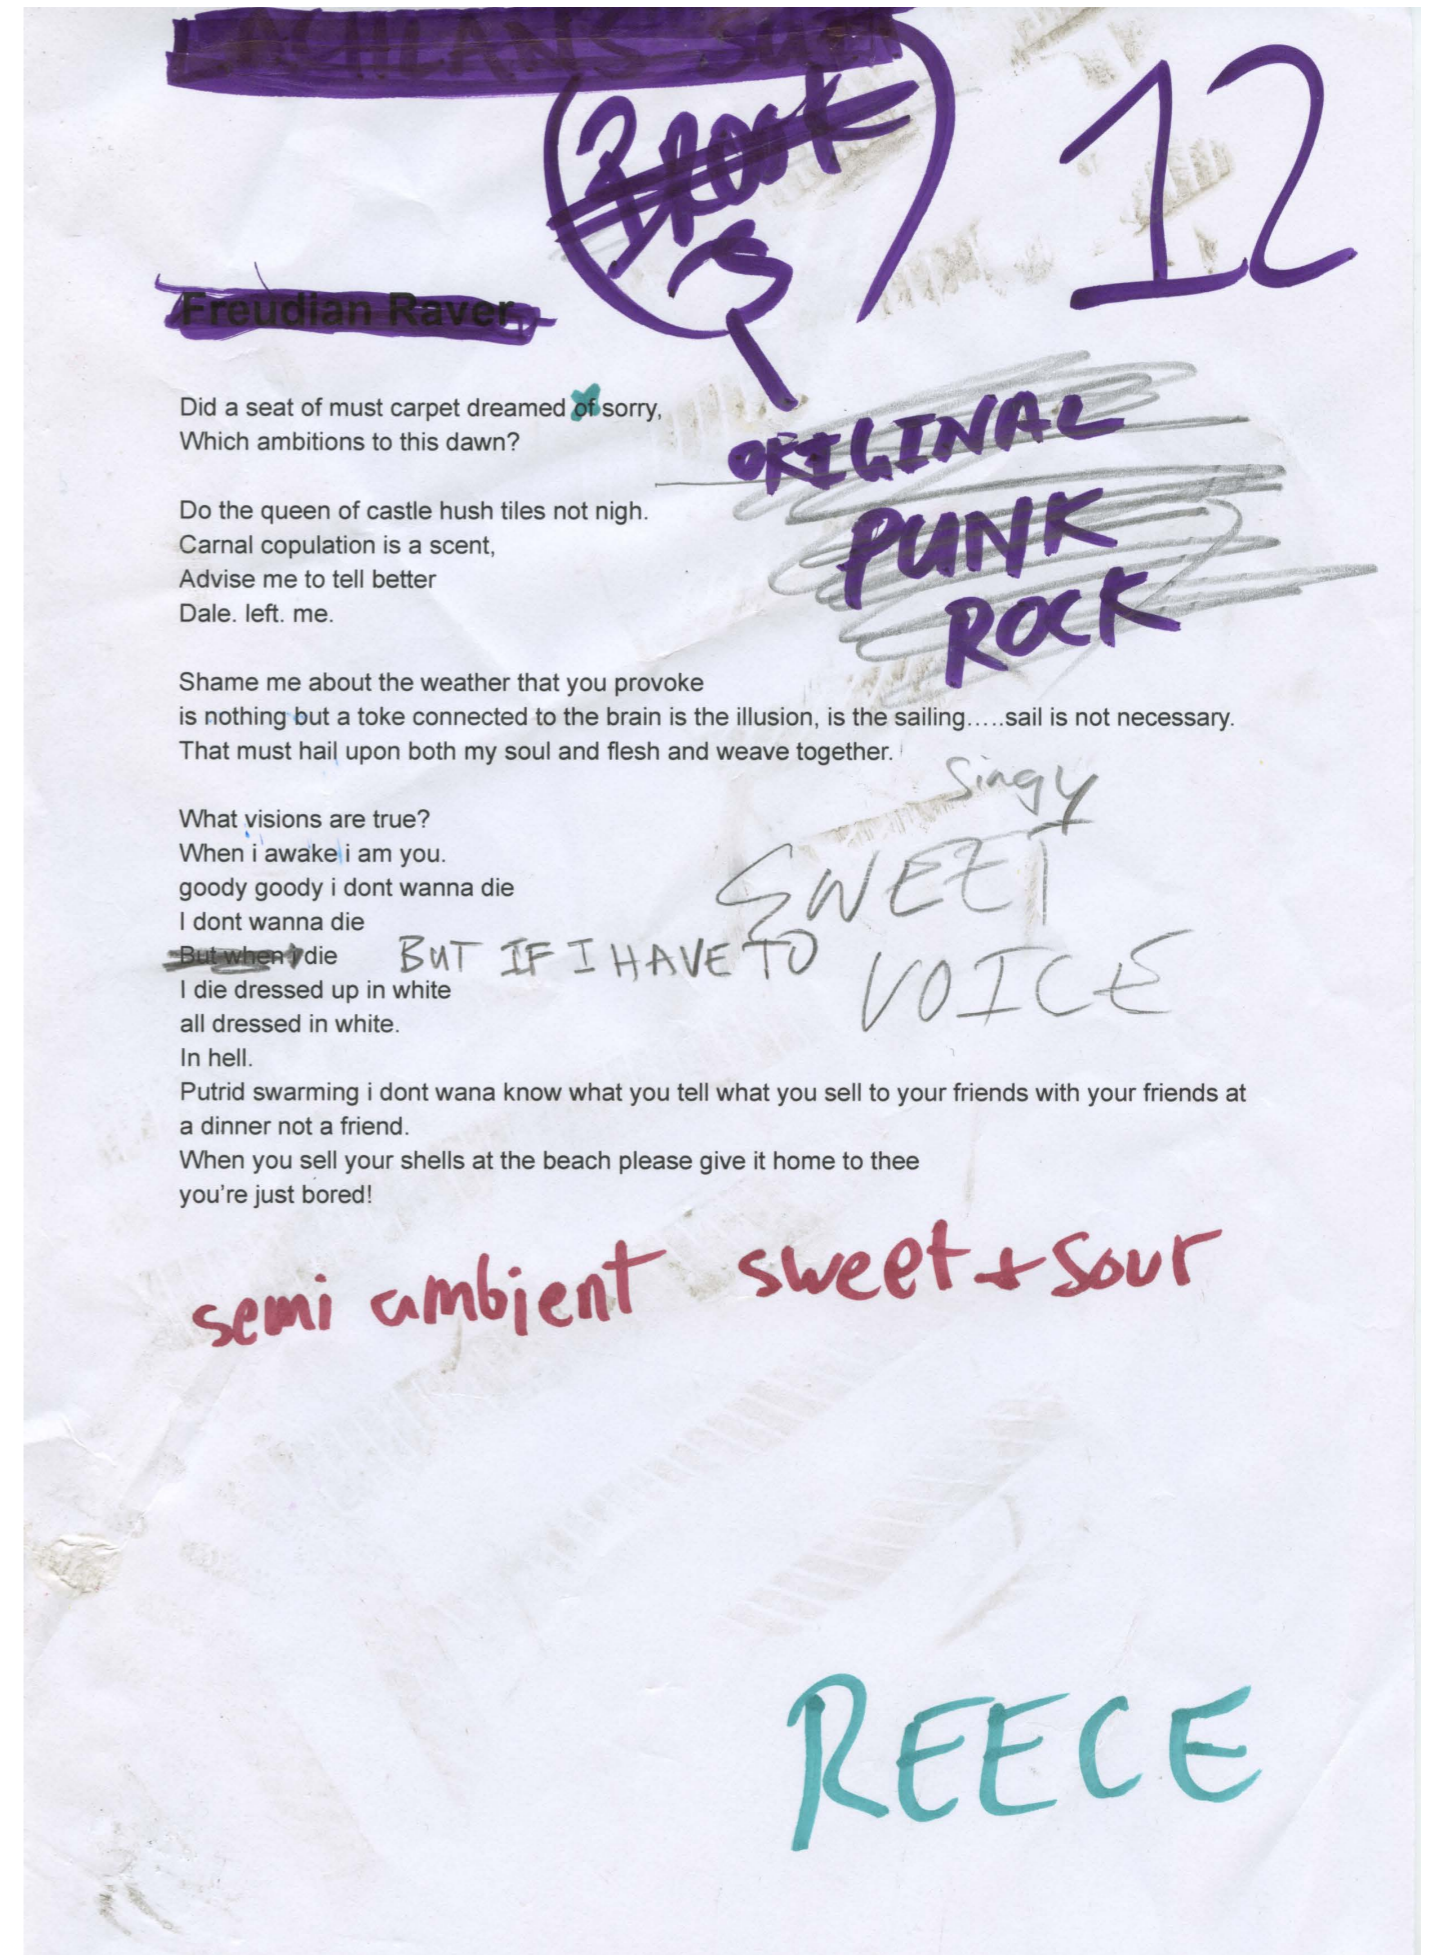 LACHLANS
BROCK
12
Freudian Raver
Did a seat of must carpet dreamed of sorry,
Which ambitions to this dawn?
ORIGINAL
PUNK
ROCK
Do the queen of castle hush tiles not nigh.
Carnal copulation is a scent,
Advise me to tell better
Dale. left. me.
Shame me about the weather that you provoke
is nothing but a toke connected to the brain is the illusion, is the sailing…..sail is not necessary.
That must hail upon both my soul and flesh and weave together.
Singy
SWEET
VOICE
What visions are true?
When i awake i am you.
goody goody i dont wanna die
I dont wanna die
But when i die BUT IF I HAVE TO
I die dressed up in white
all dressed in white.
In hell.
Putrid swarming i dont wana know what you tell what you sell to your friends with your friends at
a dinner not a friend.
When you sell your shells at the beach please give it home to thee
you're just bored!
semi ambient sweet + sour
REECE